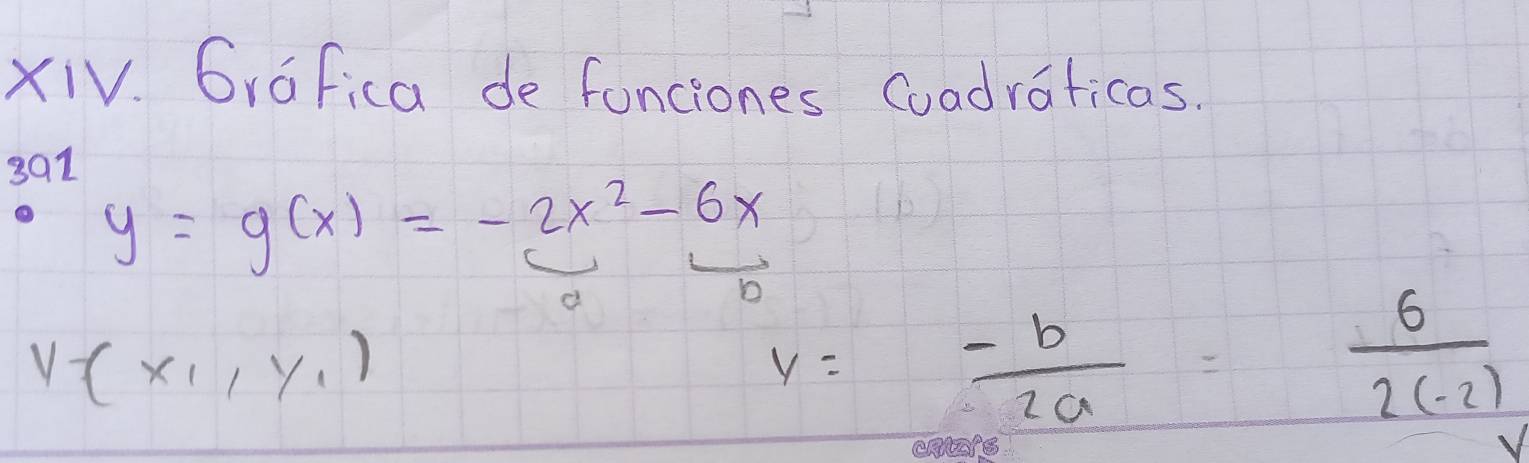 XIV. Gráfica de funciones Cuadráticas.
391
• y = g(x) = -2x² - 6x
a b
V(x₁, y₁) V = -b/2a = 6/2(-2)